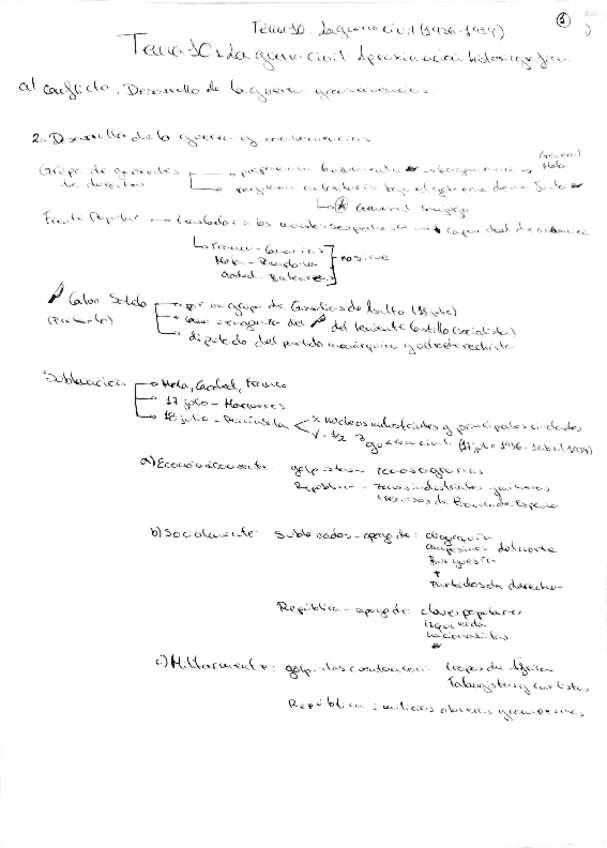 Tema 10: La guerra civil (1936-1939)
1
Tema 10: La guerra civil. Aproximación historiográfica
al conflicto. Desarrollo de la guerra y consecuencias.
2. Desarrollo de la guerra y consecuencias
Grupo de generales de derechas → levantamiento → General Mola
→ bajo el gobierno de una Junta
→ General Sanjurjo
Frente Popular → a los → capacidad de
→ Franco - Canarias
Mola - Pamplona
Goded - Baleares
no sirve
Calvo Sotelo → por un grupo de Guardias de Asalto (13 julio)
→ como venganza del del teniente Castillo (socialista)
→ diputado del partido monárquico y
Sublevación → Mola, Goded, Franco
→ 17 julio - Marruecos
→ 18 julio - Península < X núcleos industriales y principales ciudades
guerra civil (julio 1936 - 1 abril 1939)
a) Económicamente: golpistas - zonas agrarias
República - zonas industriales y mineras
+ reservas de Banco de España
b) Socialmente: Sublevados - apoyo de: oligarquía
campesinos del norte
Burguesía
+
Partidos de derecha
República - apoyo de: clases populares
izquierda
nacionalistas
c) Militarmente: golpistas: tropas de África
falangistas y carlistas
República: milicias obreras y campesinas